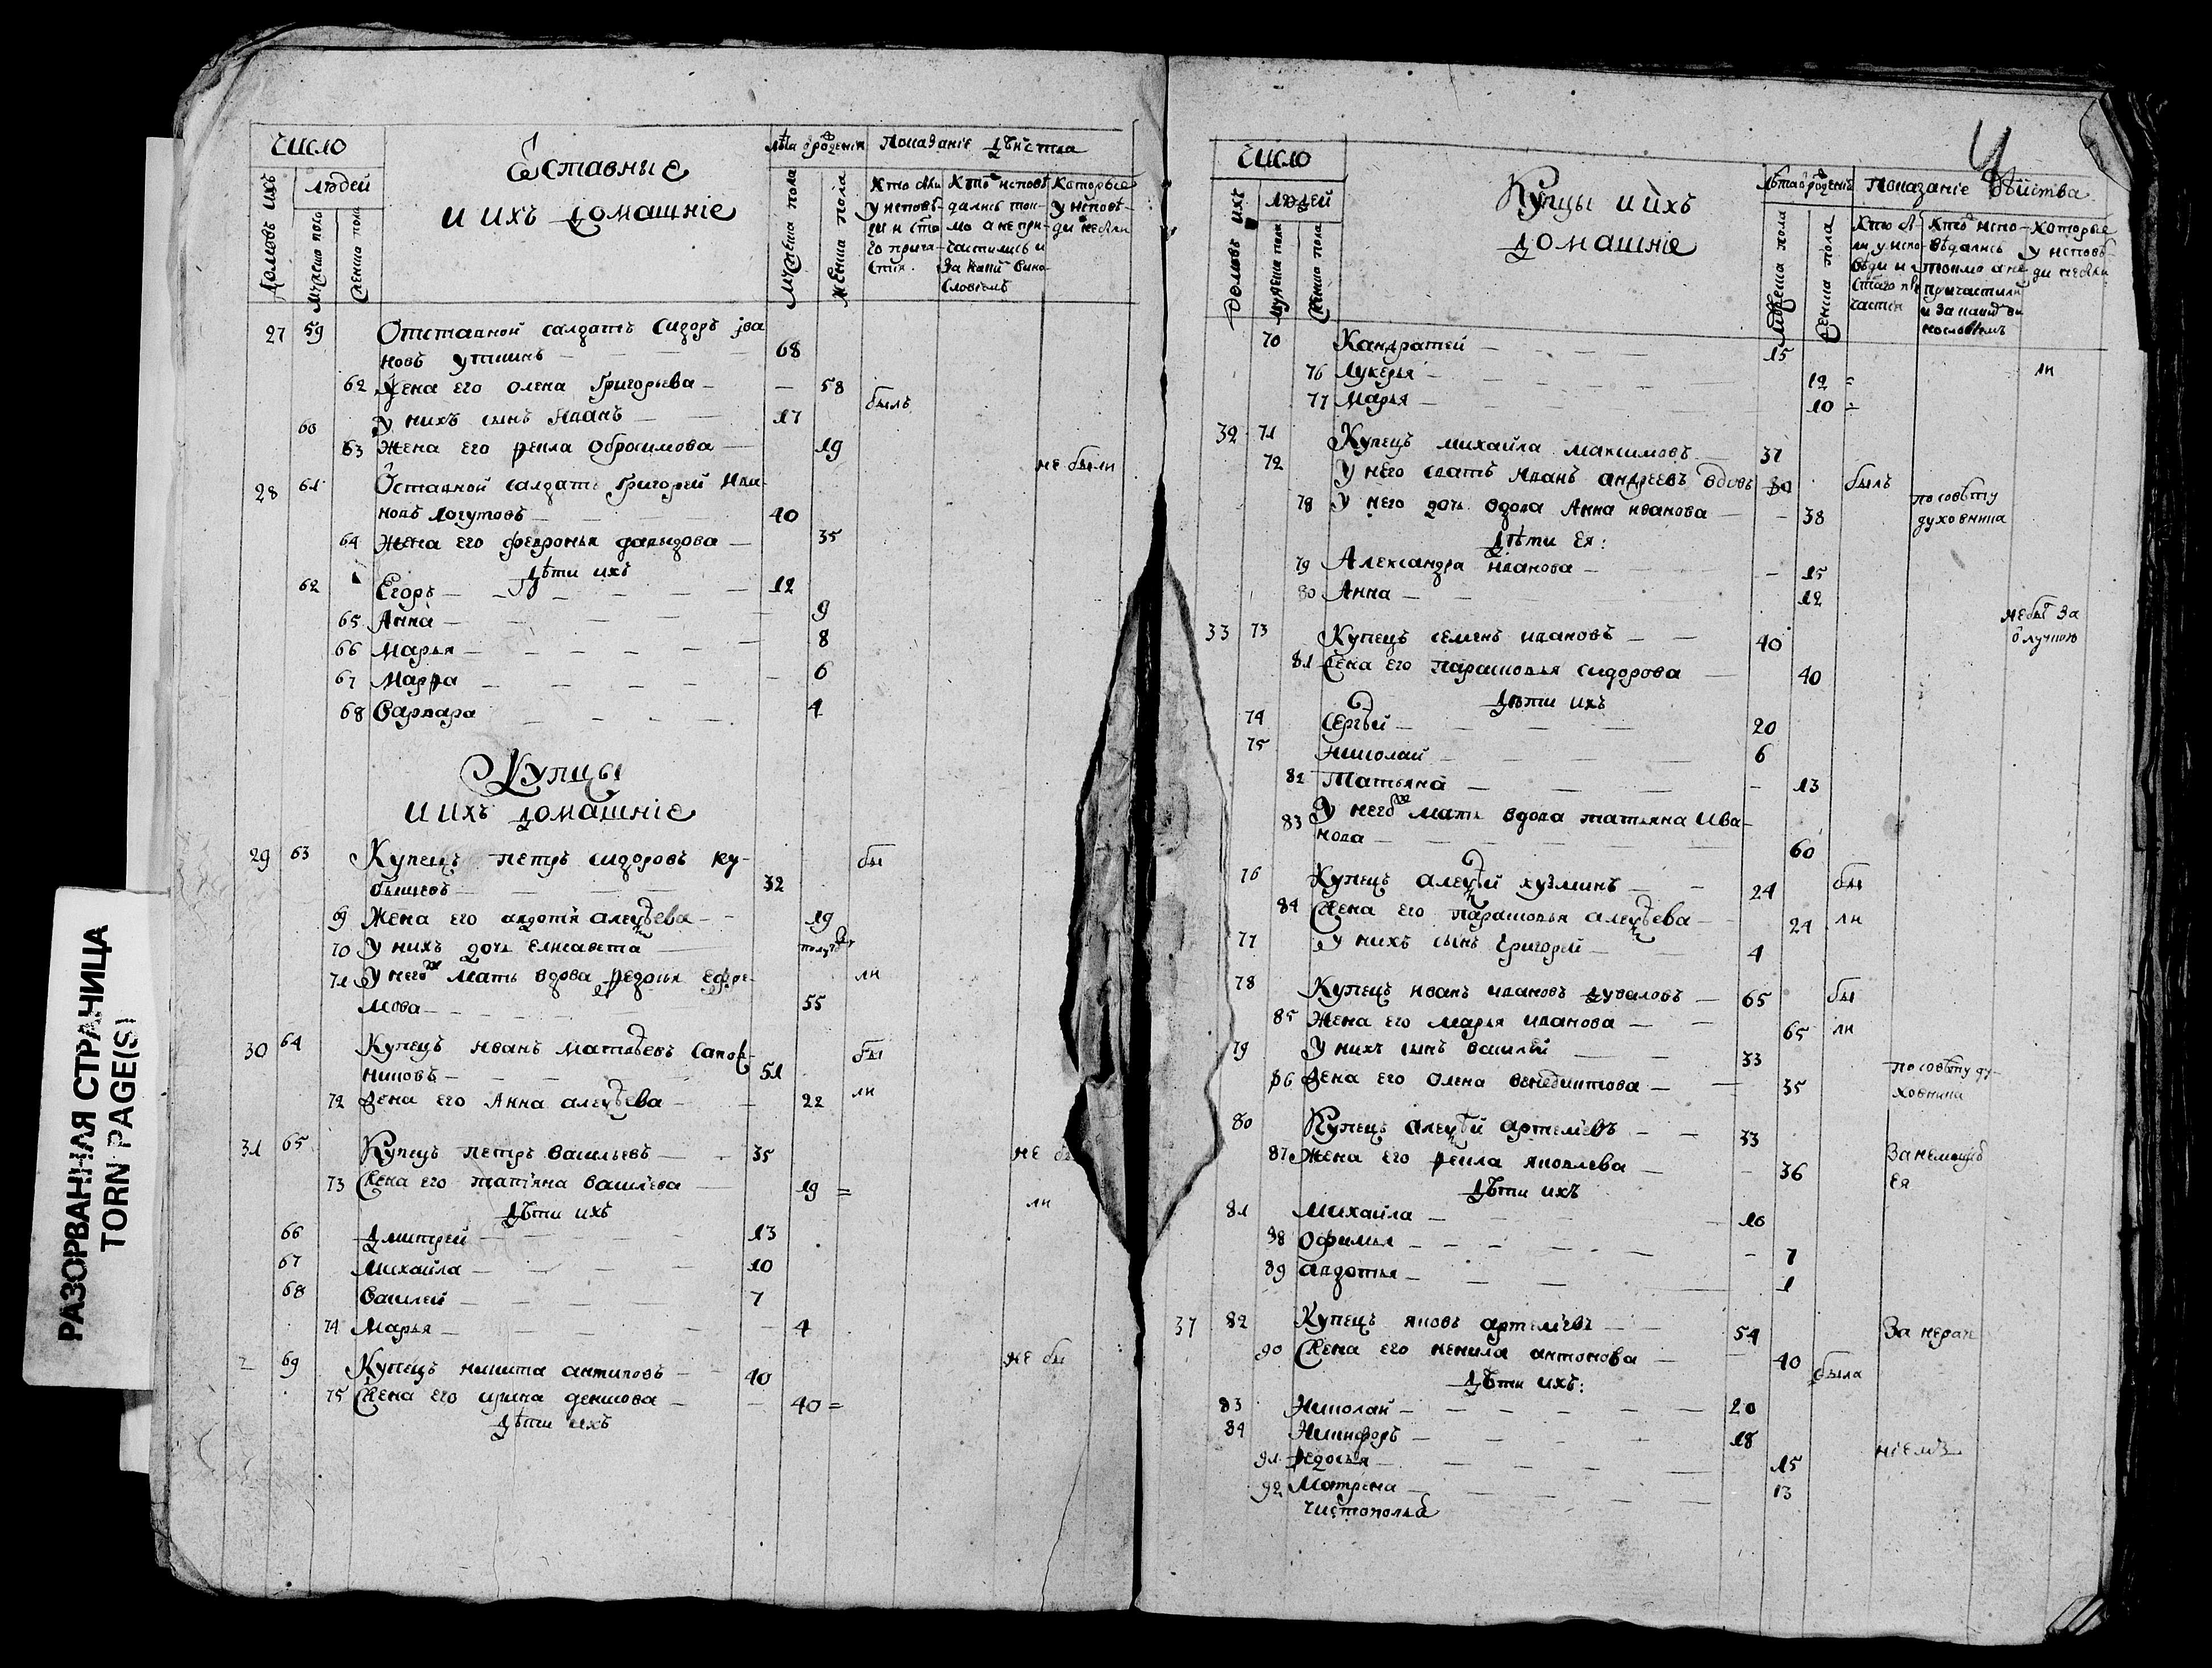 РАЗОРВАННАЯ СТРАНИЦА
TORN PAGE(S)
Число
Домовъ ихъ
людей
мужеска пола
женска пола
Ѿставные
и ихъ домашніе
лѣта ѿ рожденія
мужеска пола
женска пола
Показаніе дѣйства
Кто были
у исповѣ-
ди и свя
то прича-
стия.
Кто исповѣ
дались ток-
мо а не при-
частились и
за какй вино
словіемъ
Которые
у исповѣ-
ди не были
27 59 Отставной салдатъ Сидоръ јва
новъ утшинъ 68
62 Жена его олена Григорьева 58
былъ
60 У нихъ сынъ Иванъ 17
63 Жена его ѳекла Обросимова 19
не были
28 61 Ѿставной салдатъ Григорей Ива
новъ логутовъ 40
64 Жена его февронья давыдова 35
дѣти ихъ
62 Егоръ 12
65 Анна 9
66 Марья 8
67 Марѳа 6
68 Варвара 4
Купцы
и ихъ домашніе
29 63 Купецъ петръ сидоровъ ку- бы
бышевъ 32
69 Жена его авдотія алеѯѣева 19
70 У нихъ дочь Елисавета полуго
71 У негож мать вдова ѳедосья ефре- ли
мова 55
30 64 Купецъ иванъ матвѣевъ Сапож- бы
никовъ 51
72 Жена его Анна алеѯѣева 22 ли
31 65 Купецъ петръ васильевъ 35 не бы
73 Жена его татіяна васильева 19 = ли
дѣти ихъ
66 дмитрей 13
67 михайла 10
68 василей 7
74 Марья 4
69 Купецъ никита антиповъ 40 не бы
75 Жена его ирина денисова 40 =
дѣти ихъ
Число
Домовъ ихъ
людей
мужеска пола
женска пола
Купцы и ихъ
домашніе
лѣта ѿ рожденія
мужеска пола
женска пола
Показаніе дѣйства
Кто бы
ли у испо
вѣди и
стаго при
частія
Кто испо
вѣдались
токмо а не
причастили
и за какй ви
нословіемъ
Которые
у исповѣ
ди не были
70 Кандратей 15
ли
76 лукерья 12 =
77 Марья 10 =
32 71 Купецъ михайла максимовъ 37
72 У него сватъ иванъ андреевъ вдовъ 80 былъ
по совѣту
78 У него дочь вдова Анна иванова 38 духовника
дѣти ея:
79 Александра иванова 15
80 Анна 12
не бы за
33 73 Купецъ семенъ ивановъ 40 ѿлучкою
81 Жена его парасковья сидорова 40
дѣти ихъ
74 Сергѣй 20
75 николай 6
82 Татьяна 13
83 У негож мать вдова татьяна Ива-
нова 60
76 Купецъ алеѯѣй кузминъ 24 бы
84 Жена его парасковья алеѯѣева 24 ли
77 У нихъ сынъ Григорей 4
78 Купецъ иванъ ивановъ дуваловъ 65 бы
85 Жена его марья иванова 65 ли
79 У нихъ сынъ василей 33
по совѣту ду-
86 Жена его олена венедиктова 35 ховника
80 Купецъ алеѯѣй артемьевъ 33
87 Жена его ѳекла яковлева 36 За немощію
ея
дѣти ихъ
81 михайла 10
88 офимья 7
89 авдотья 1
37 82 Купецъ яковъ артемьевъ 54 За нерачѣ
90 Жена его ненила антонова 40 была
дѣти ихъ:
83 Николай 20
84 Никифоръ 18
ніемъ
91 ѳедосья 15
92 Матрена 13
чистополья